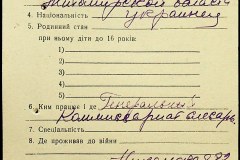 Житомирской области
4. Національність украинец
5. Родинний стан
при ньому діти до 16 років:
1)
2)
3)
4)
5)
6. Ким працює і де Генеральный
Коммиссариат слесарь
7. Спеціальність
8. Де проживав до війни